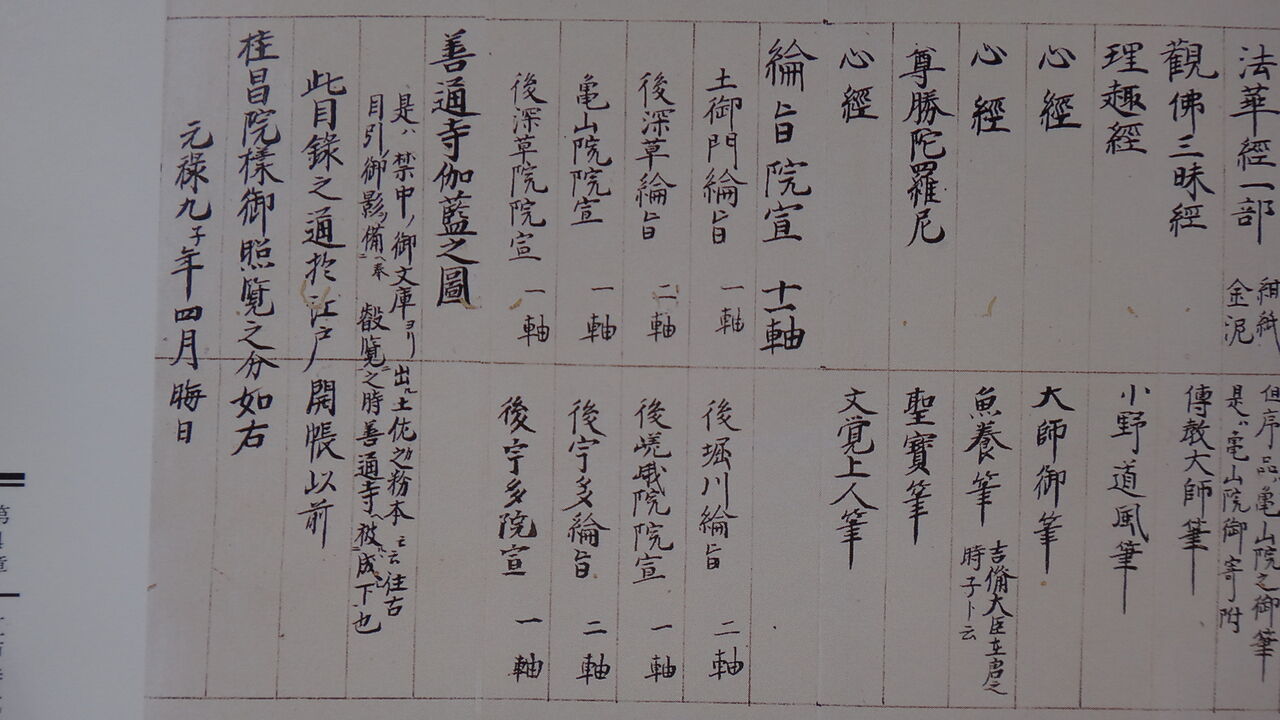 法華經一部 紺紙金泥 但序品ハ亀山院之御筆
是ハ亀山院御寄附
觀佛三昧經 傳教大師筆
理趣經 小野道風筆
心經 大師御筆
心經 魚養筆 吉備大臣在唐之
時子ト云
尊勝陀羅尼 聖寶筆
心經 文覚上人筆
綸旨院宣 十一軸
土御門綸旨 一軸 後堀川綸旨 二軸
後深草綸旨 二軸 後嵯峨院院宣 一軸
亀山院院宣 一軸 後宇多綸旨 二軸
後深草院院宣 一軸 後宇多院宣 一軸
善通寺伽藍之圖
是ハ禁中ノ御文庫ヨリ出ル土佐之粉本ト云云住古
目引御影ヲ備ヘ奉ル 叡覧之時善通寺ヘ被成下也
此目録之通於江戸開帳以前
桂昌院様御照覧之分如右
元禄九子年四月晦日
第
章